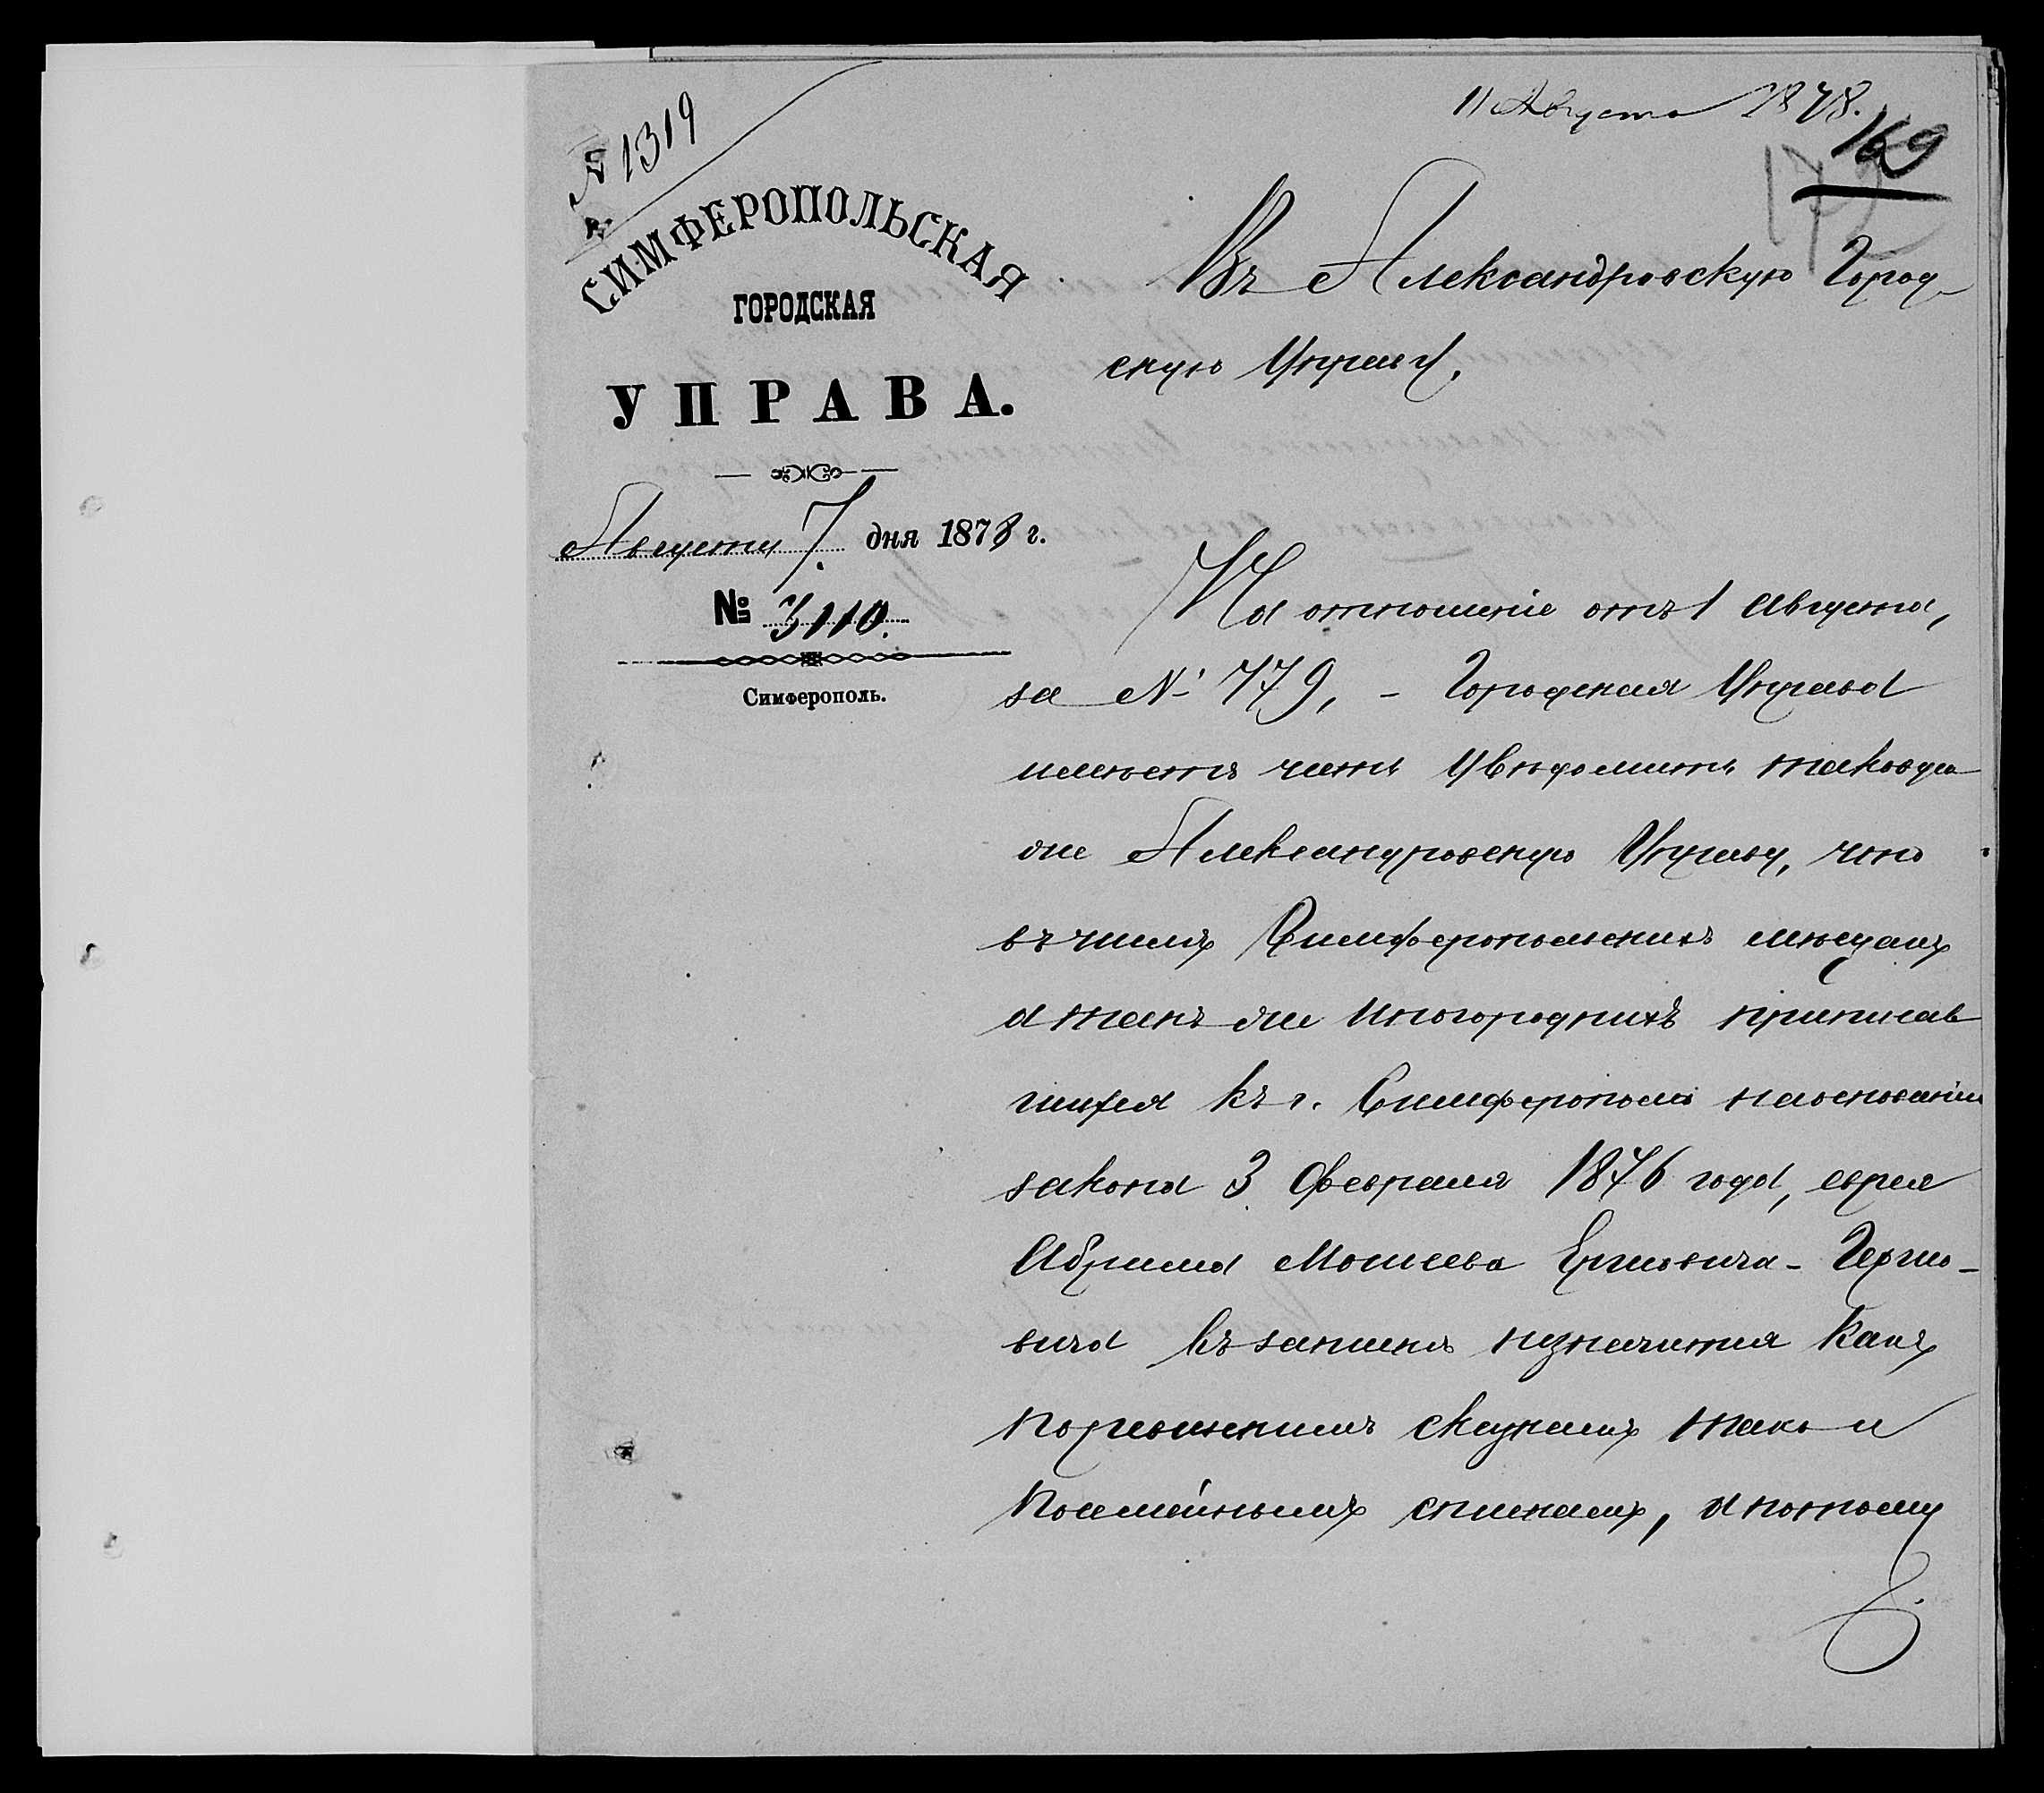 11 Августа 1878.
№ 1319
169
172
СИМФЕРОПОЛЬСКАЯ
ГОРОДСКАЯ
УПРАВА.
Августа 7. дня 1878 г.
№ 3110.
Симферополь.
Въ Александровскую Город-
скую Управу.
На отношеніе отъ 1 Августа,
за № 779, - Городская Управа
имѣетъ честь увѣдомить таковую
же Александровскую Управу, что
въ числѣ Симферопольскихъ мѣщанъ
а такъ же иногороднихъ приписав
шихся къ г. Симферополю на основаніи
закона 3 Февраля 1876 года, еврея
Абрама Мошеева Ершовича - Гершо-
вича въ записи незначится какъ
по ревизскимъ сказкамъ такъ и
посемейнымъ спискамъ, а потому